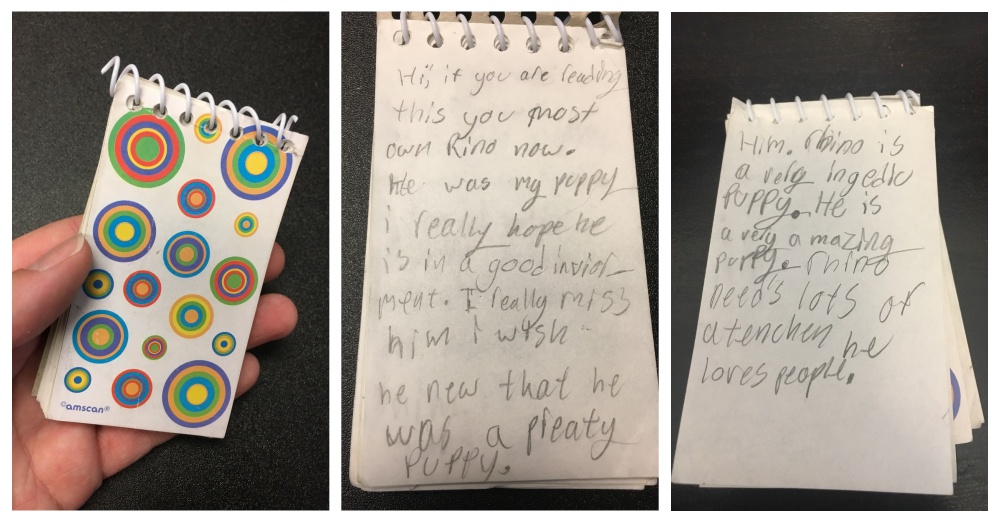 ©amscan®
Hi, if you are reading
this you most
own Rino now.
He was my puppy
i really hope he
is in a good inviorl-
ment. I really miss
him i wish
he new that he
was a pleaty
puppy.
Him. Rhino is
a very ingedlu
puppy. He is
a very amazing
puppy. Rhino
needs lots of
atenchen he
loves people.